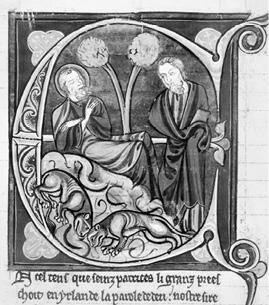 A cel tens que seinz patrices li granz prees
choit en yrlande la parole deden; nostre sire